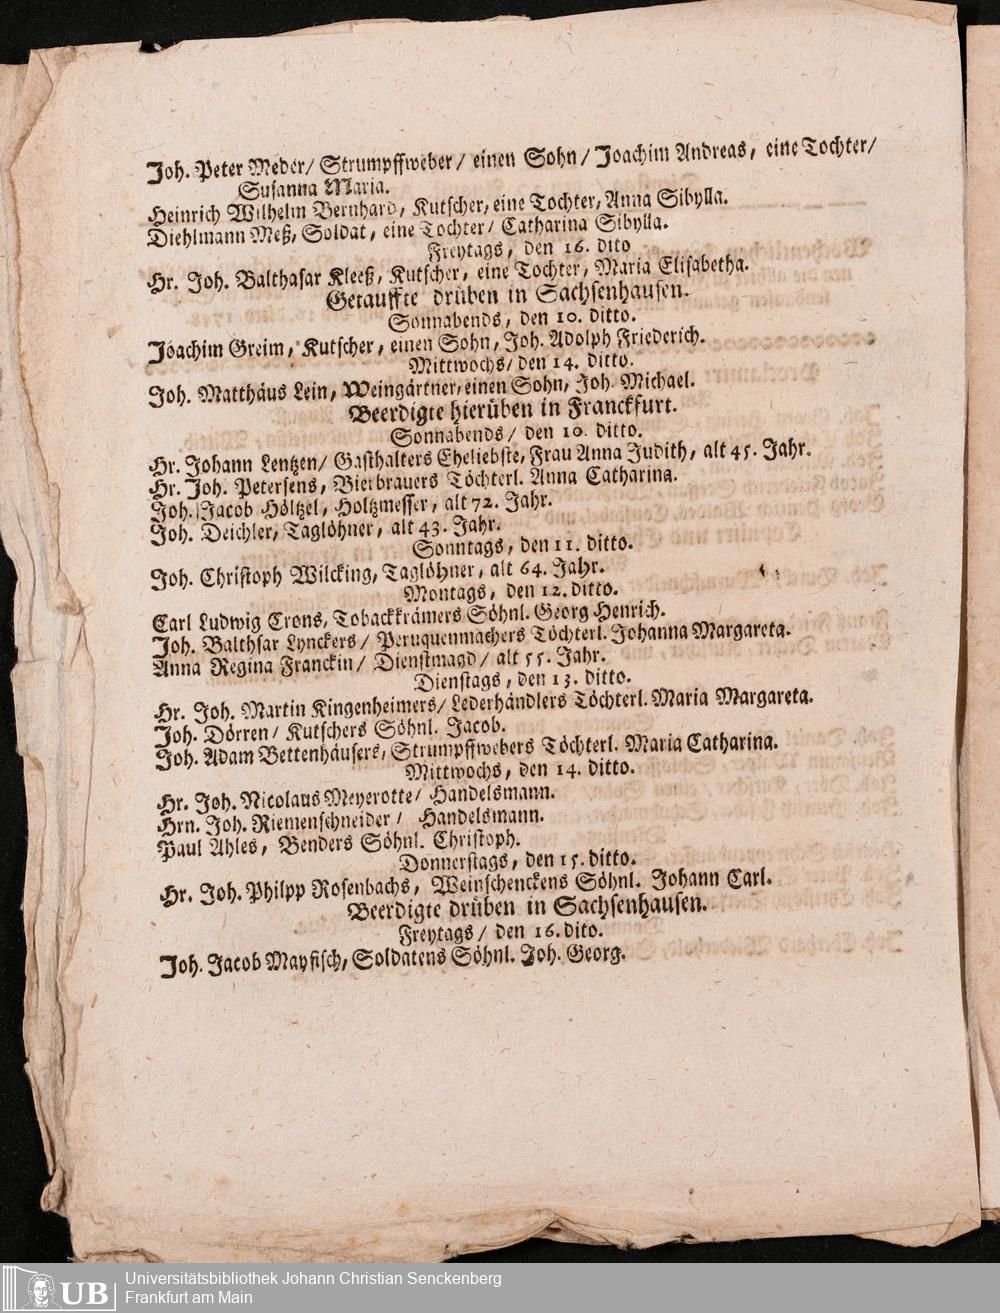 Joh. Peter Meder/ Strumpffweber/ einen Sohn/ Joachim Andreas, eine Tochter/
Susanna Maria.
Heinrich Wilhelm Bernhard, Kutscher, eine Tochter, Anna Sibylla.
Diehlmann Meß, Soldat, eine Tochter/ Catharina Sibylla.
Freytags, den 16. dito
Hr. Joh. Balthasar Kleeß, Kutscher, eine Tochter, Maria Elisabetha.
Getauffte drüben in Sachsenhausen.
Sonnabends, den 10. ditto.
Joachim Greim, Kutscher, einen Sohn, Joh. Adolph Friederich.
Mittwochs/ den 14. ditto.
Joh. Matthäus Lein, Weingärtner, einen Sohn, Joh. Michael.
Beerdigte hierüben in Franckfurt.
Sonnabends/ den 10. ditto.
Hr. Johann Lentzen/ Gasthalters Eheliebste, Frau Anna Judith, alt 45. Jahr.
Hr. Joh. Petersens, Bierbrauers Töchterl. Anna Catharina.
Joh. Jacob Höltzel, Holtzmesser, alt 72. Jahr.
Joh. Deichler, Taglöhner, alt 43. Jahr.
Sonntags, den 11. ditto.
Joh. Christoph Wilcking, Taglöhner, alt 64. Jahr.
Montags, den 12. ditto.
Carl Ludwig Crons, Tobackkrämers Söhnl. Georg Henrich.
Joh. Balthsar Lynckers/ Peruquenmachers Töchterl. Johanna Margareta.
Anna Regina Franckin/ Dienstmagd/ alt 55. Jahr.
Dienstags, den 13. ditto.
Hr. Joh. Martin Kingenheimers/ Lederhändlers Töchterl. Maria Margareta.
Joh. Dörren/ Kutschers Söhnl. Jacob.
Joh. Adam Bettenhäusers, Strumpffwebers Töchterl. Maria Catharina.
Mittwochs, den 14. ditto.
Hr. Joh. Nicolaus Meyerotte/ Handelsmann.
Hrn. Joh. Riemenschneider/ Handelsmann.
Paul Ahles, Benders Söhnl. Christoph.
Donnerstags, den 15. ditto.
Hr. Joh. Philpp Rosenbachs, Weinschenckens Söhnl. Johann Carl.
Beerdigte drüben in Sachsenhausen.
Freytags/ den 16. dito.
Joh. Jacob Mayfisch, Soldatens Söhnl. Joh. Georg.
UB
Universitätsbibliothek Johann Christian Senckenberg
Frankfurt am Main